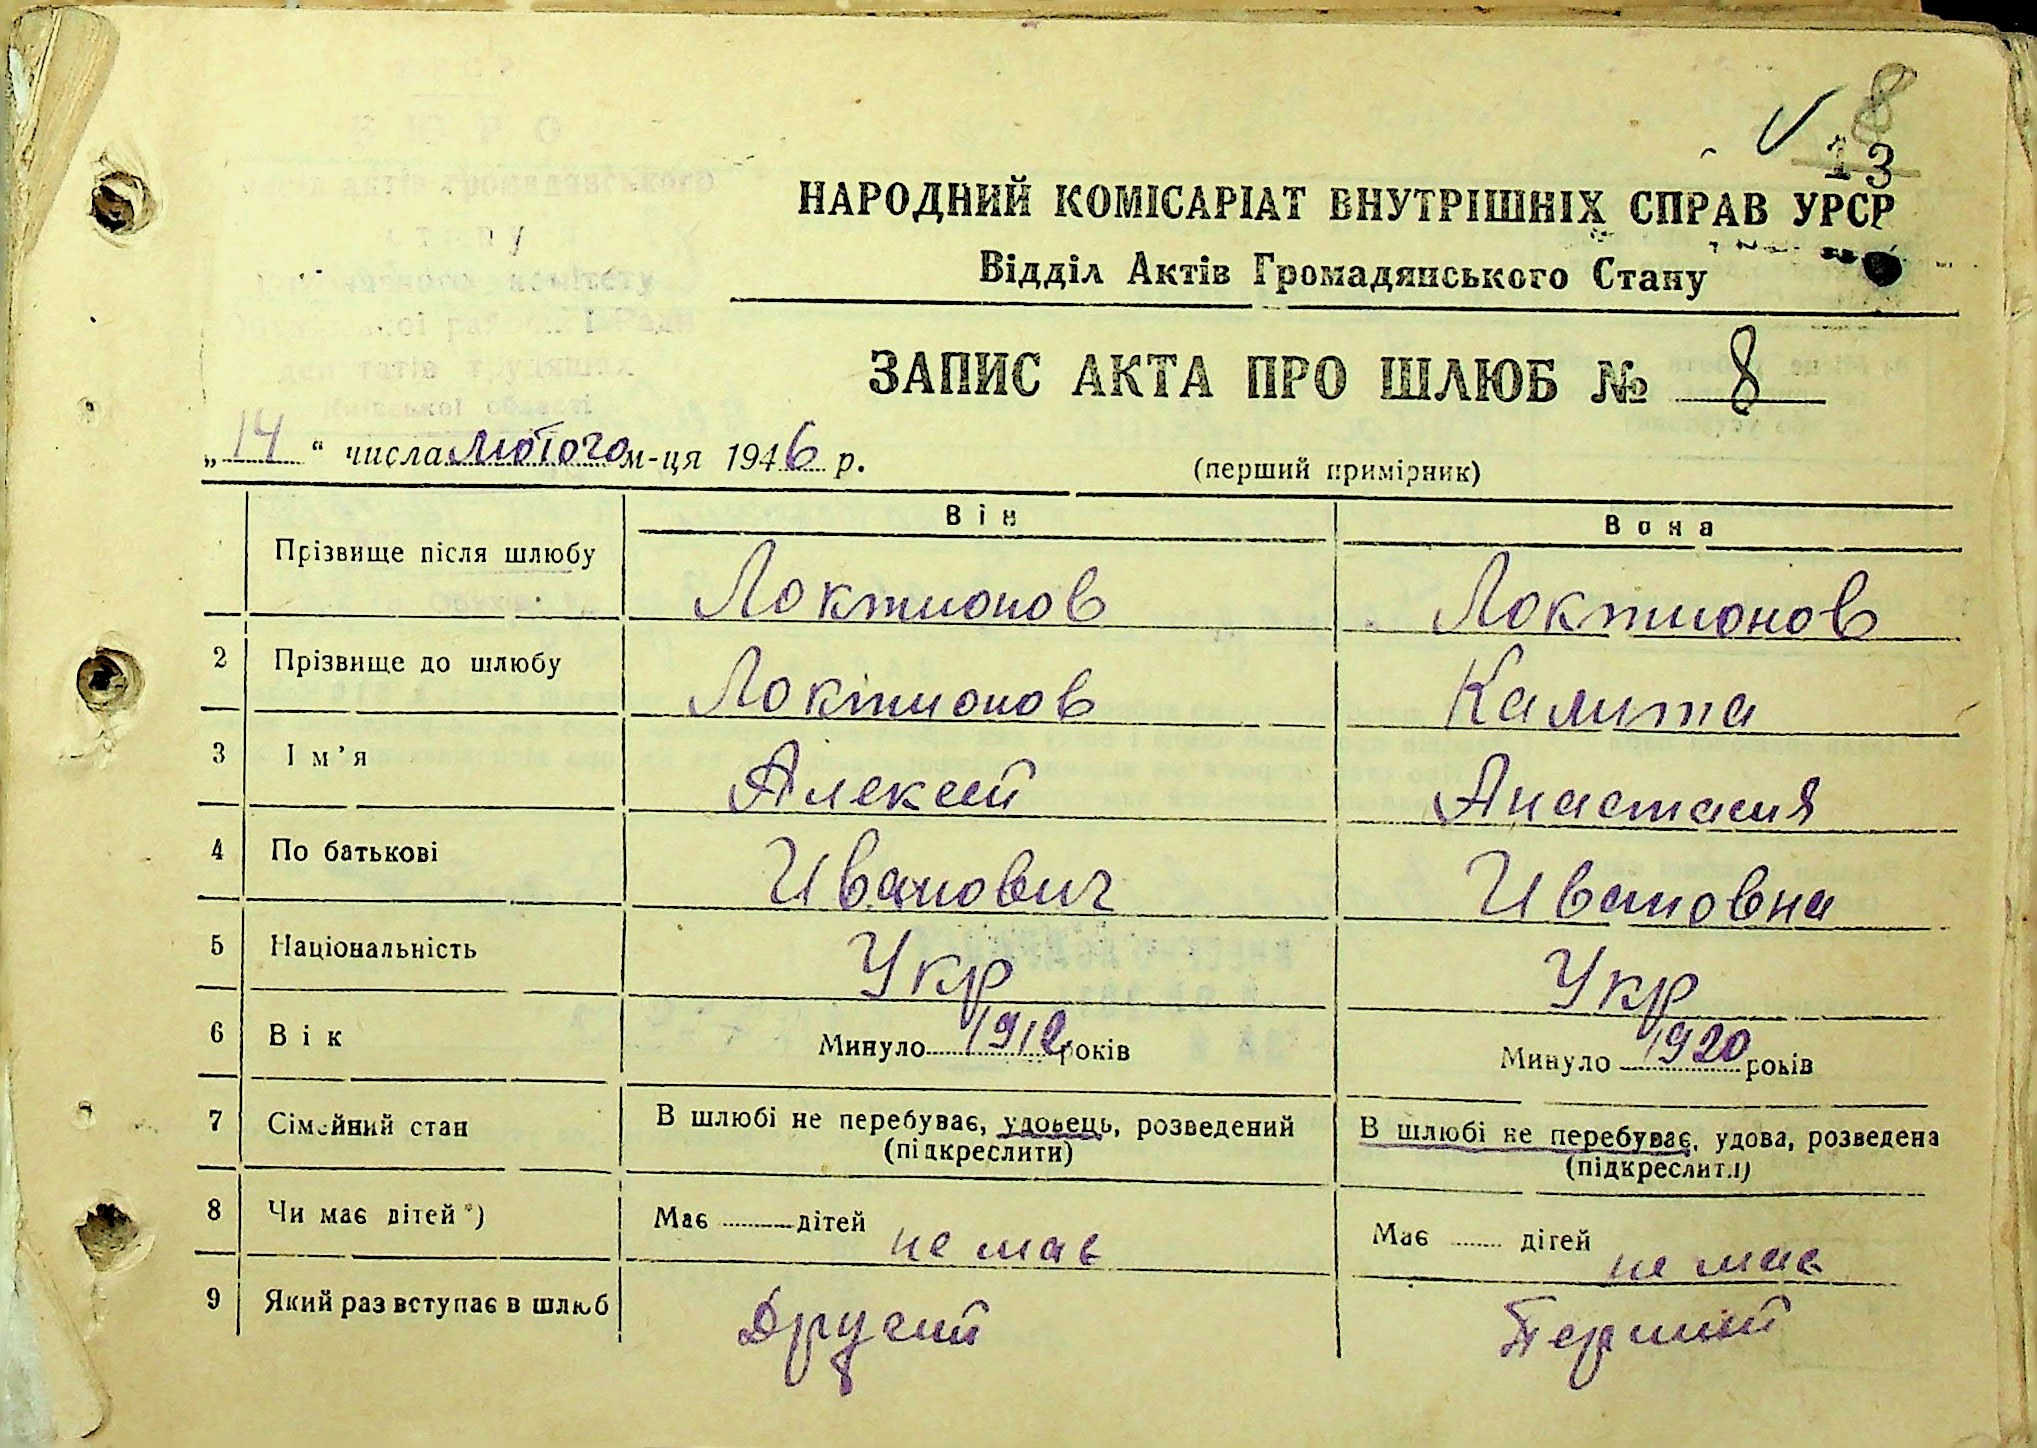 8
13
НАРОДНИЙ КОМІСАРІАТ ВНУТРІШНІХ СПРАВ УРСР
Відділ Актів Громадянського Стану
ЗАПИС АКТА ПРО ШЛЮБ № 8
„14“ числа лютого м-ця 1946 р.
(перший примірник)
Він Вона
Прізвище після шлюбу Локтионов Локтионов
2 Прізвище до шлюбу Локтионов Калита
3 Ім’я Алексей Анастасия
4 По батькові Иванович Ивановна
5 Національність Укр Укр
6 Вік Минуло 1912 років Минуло 1920 років
7 Сімейний стан В шлюбі не перебуває, удовець, розведений В шлюбі не перебуває, удова, розведена
(підкреслити) (підкреслити)
8 Чи має дітей*) Має дітей не має Має дітей не має
9 Який раз вступає в шлюб Другий Перший